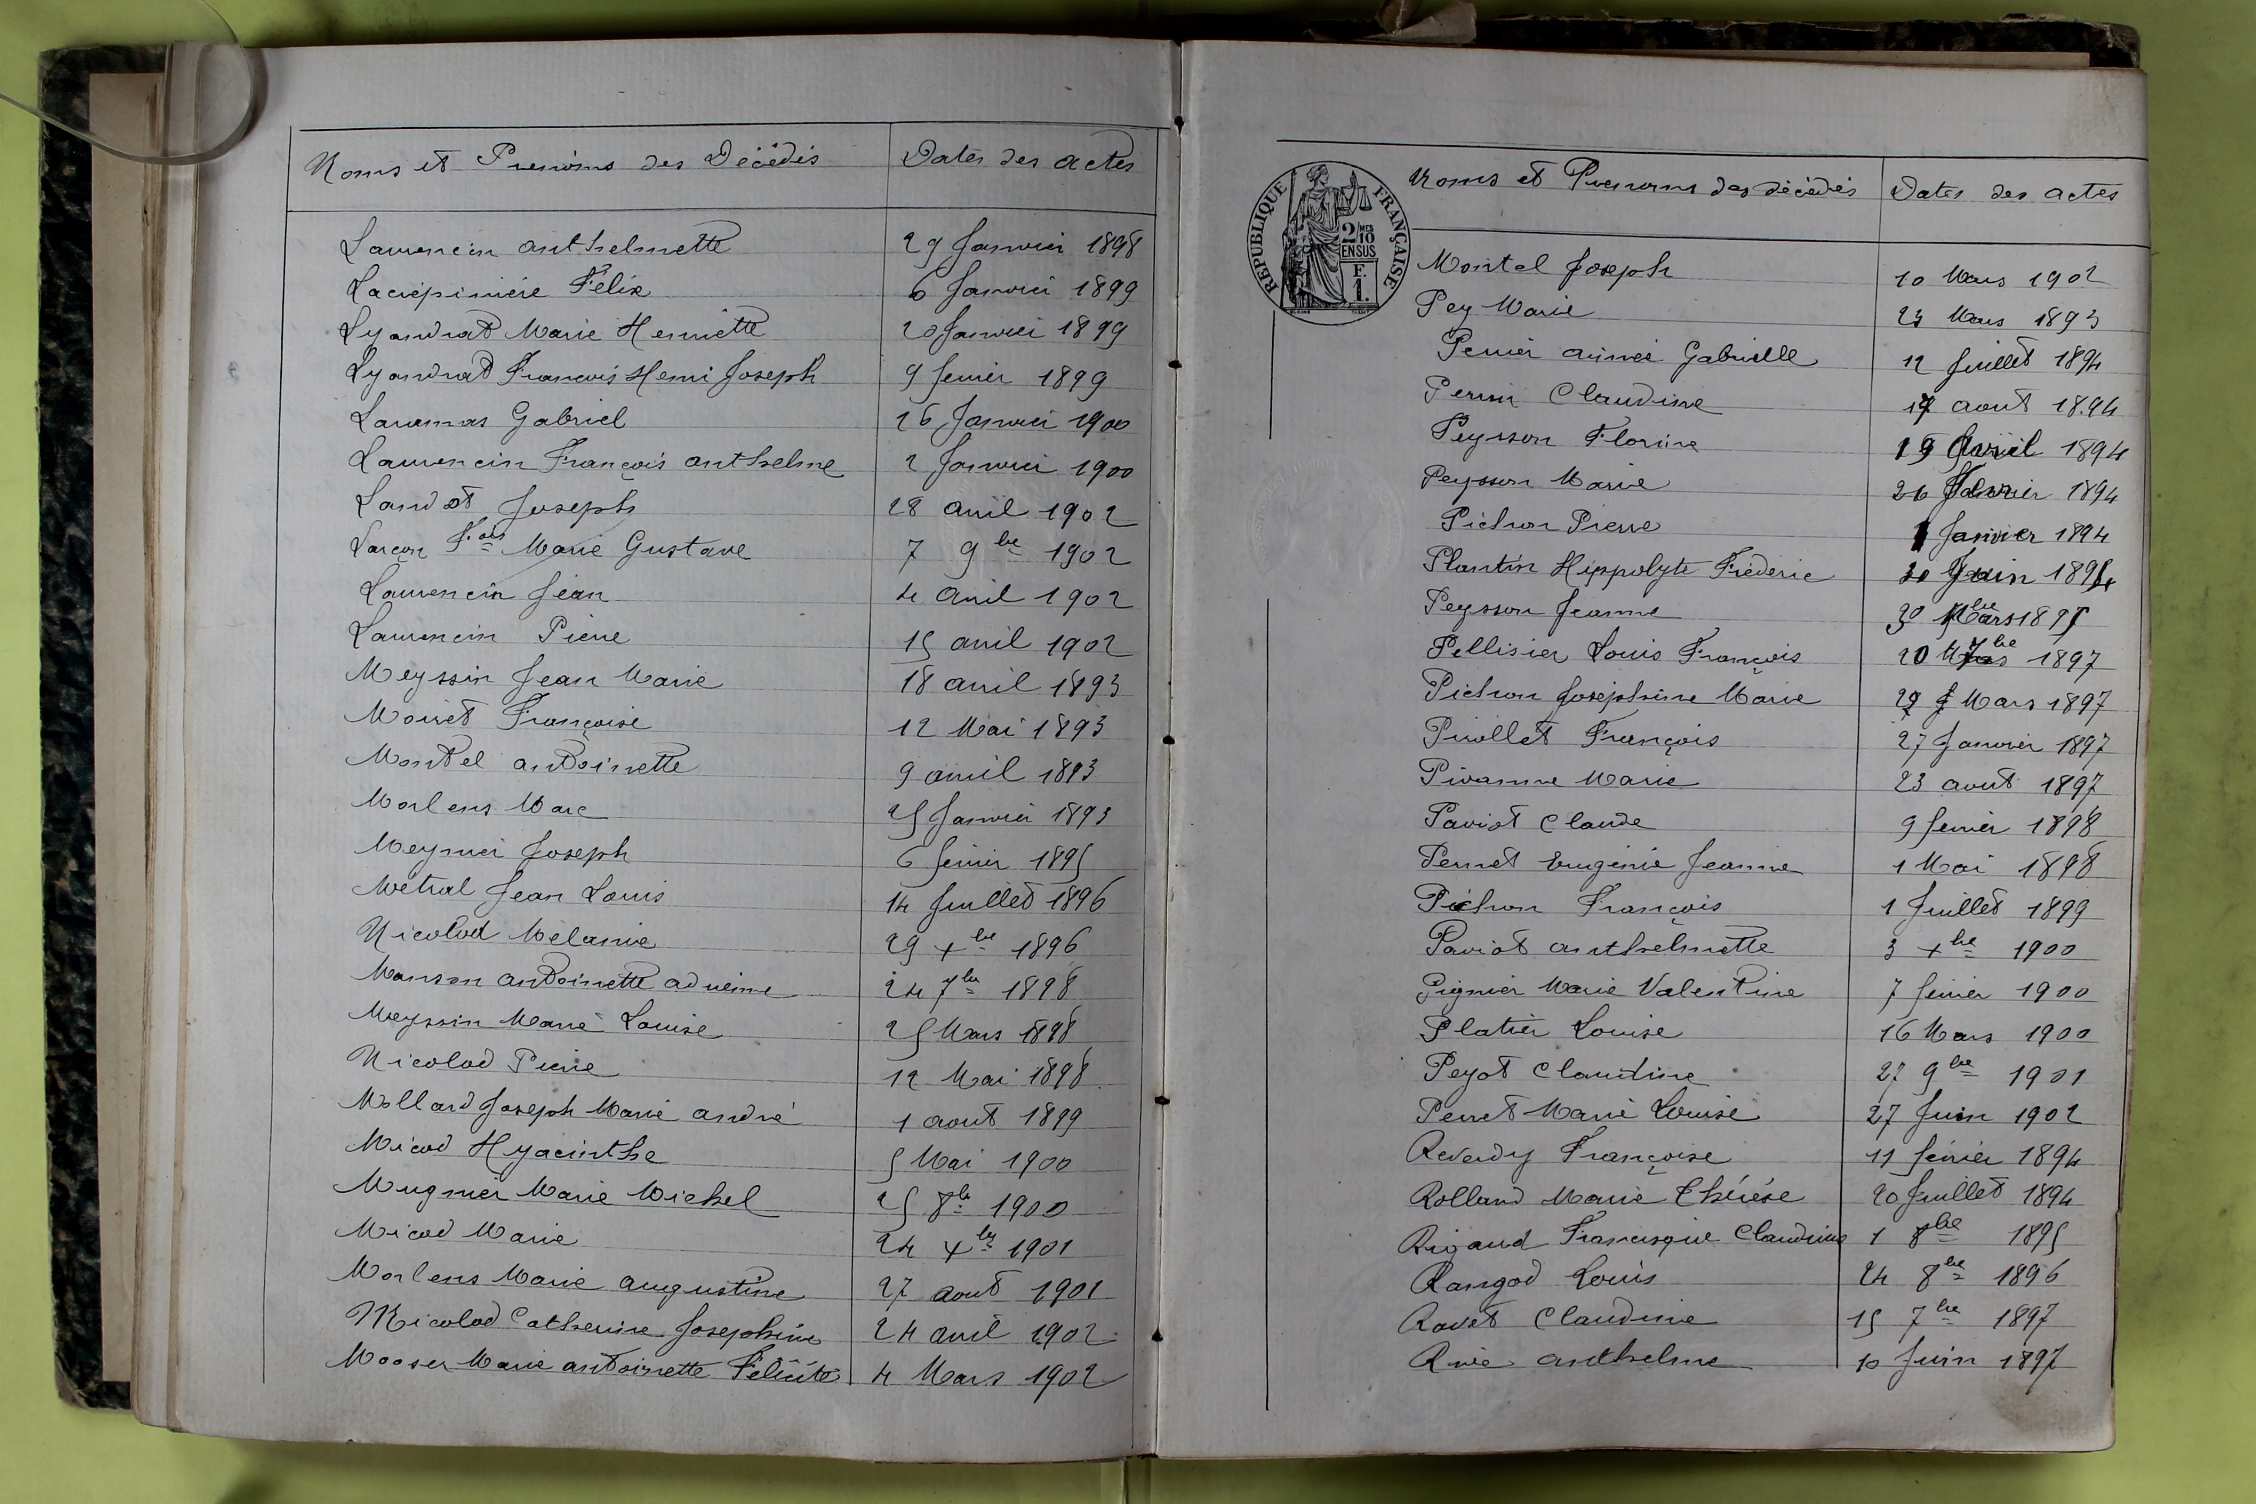 Noms et Prenoms des Décédés Dates des actes
Laurencin anthelmette 29 Janvier 1898
Lacrépinière Félix 6 Janvier 1899
Lyandrat Marie Henriette 20 Janvier 1899
Lyandrat François Henri Joseph 9 fevrier 1899
Gabriel 16 Janvier 1900
Laurencin François anthelme 2 Janvier 1900
Landot Joseph 28 avril 1902
Larçon Fois Marie Gustave 7 9bre 1902
Laurencin Jean 4 avril 1902
Laurencin Pierre 15 avril 1902
Meyssin Jean Marie 18 avril 1893
Moiret Françoise 12 Mai 1893
Montel antoinette 9 avril 1893
Morlens Marc 25 Janvier 1893
Meynier Joseph 6 fevrier 1895
Métral Jean Louis 14 Juillet 1896
Nicolod Mélanie 29 xbre 1896
Manson antoinette 24 7bre 1898
Meyssin Marie Louise 25 Mars 1898
Nicolod Pierre 12 Mai 1898
Mollard Joseph Marie andré 1 aout 1899
Micod Hyacinthe 5 Mai 1900
Mugnier Marie Michel 25 8b 1900
Micod Marie 24 xbre 1901
Morlens Marie augustine 27 aout 1901
Nicolod Catherine Josephine 24 avril 1902
Mooser Marie antoinette Félicité 4 Mars 1902
RÉPUBLIQUE FRANÇAISE
2/10 MES
EN SUS
F.
1.
Noms et Prenoms des décédés Dates des actes
Montel Joseph 10 Mars 1902
Pey Marie 23 Mars 1893
Perrier aimée Gabrielle 12 Juillet 1894
Perrin Claudine 17 aout 1894
Peysson Florine 19 Avril 1894
Peysson Marie 26 1894
Pichon Pierre 1 Janvier 1894
Plantin Hippolyte Fréderic 30 Juin 1894
Peysson Jeanne 30 1895
Pellisier Louis François 20 7bre 1897
Pichon Joséphine Marie 29 Mars 1897
Piollet François 27 Janvier 1897
Pivanne Marie 23 aout 1897
Paviot Claude 9 fevrier 1898
Perret Eugénie Jeanne 1 Mai 1898
Pichon François 1 Juillet 1899
Paviot anthelmette 3 xbre 1900
Pignier Marie Valentine 7 fevrier 1900
Platier Louise 16 Mars 1900
Peyot Claudine 27 9bre 1901
Perret Marie Louise 27 Juin 1902
Reverdy Françoise 11 février 1894
Rolland Marie Thérése 20 Juillet 1894
Rigaud Francisque Claudius 1 8bre 1895
Rangod Louis 24 8bre 1896
Ravet Claudine 15 7bre 1897
anthelme 10 Juin 1897